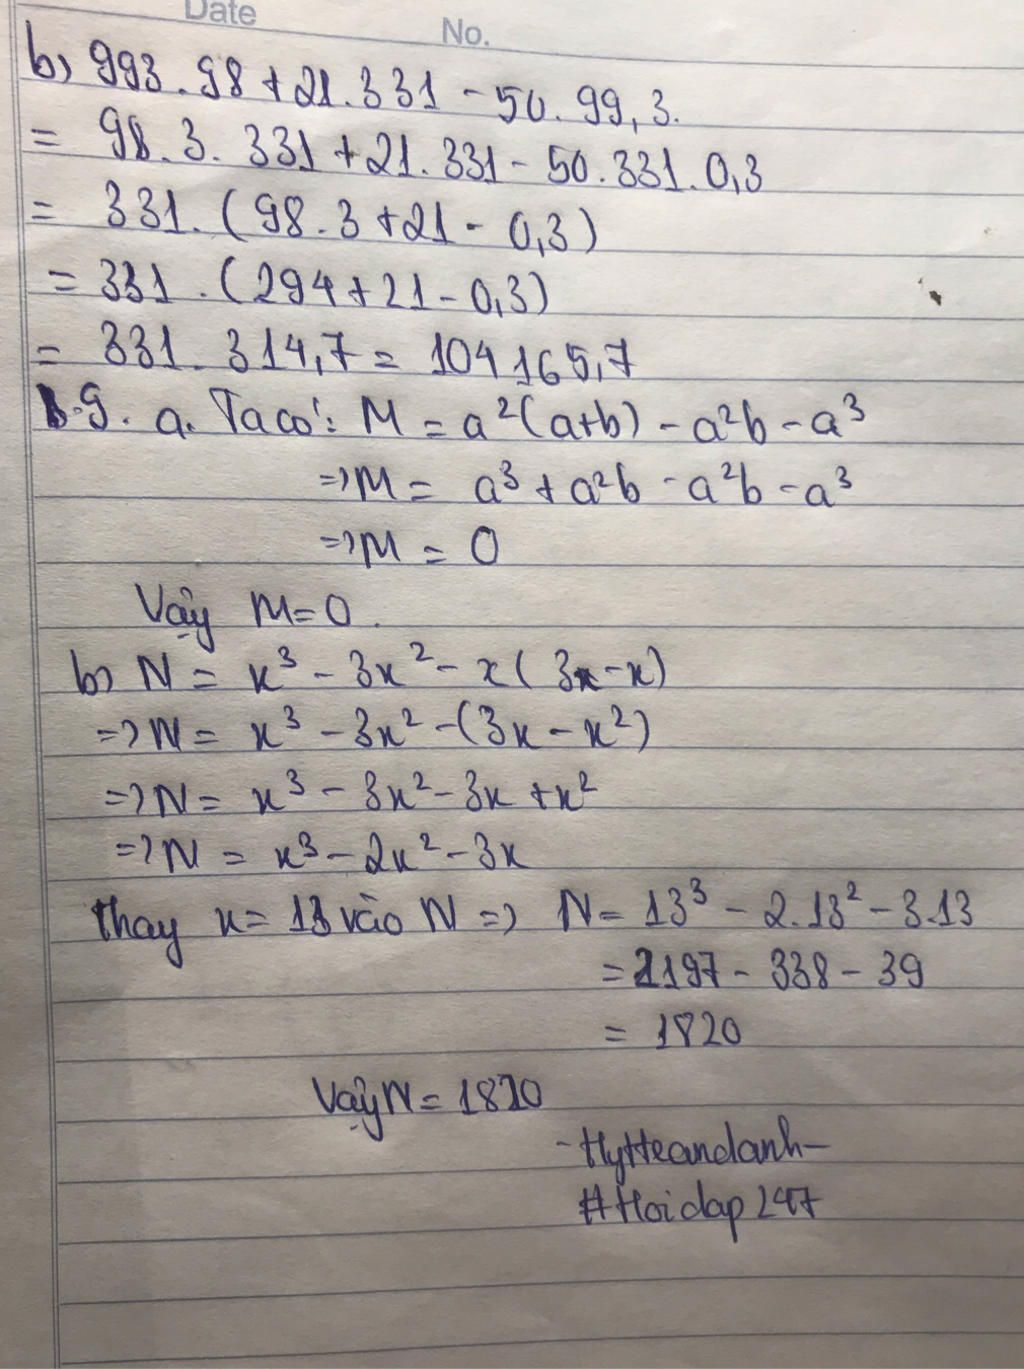 Date
No.
b) 993.98 + 21.331 - 50.99,3.
= 98.3.331 + 21.331 - 50.331.0,3
= 331.(98.3 + 21 - 0,3)
= 331.(294 + 21 - 0,3)
= 331.314,7 = 104165,7
9. a. Ta có: M = a²(a+b) - a²b - a³
=> M = a³ + a²b - a²b - a³
=> M = 0
Vậy M = 0.
b) N = x³ - 3x² - x(3x - x)
=> N = x³ - 3x² - (3x - x²)
=> N = x³ - 3x² - 3x + x²
=> N = x³ - 2x² - 3x
thay x = 13 vào N => N = 13³ - 2.13² - 3.13
= 2197 - 338 - 39
= 1820
Vậy N = 1820
- HyHeandanh -
#Hoidap247